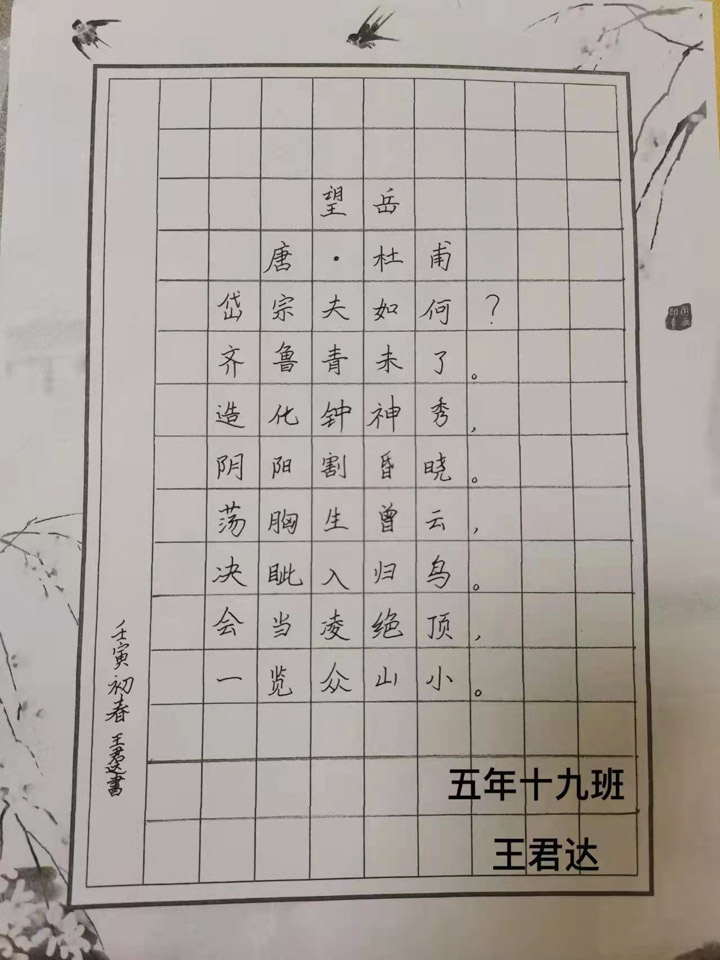 望岳
唐·杜甫
岱宗夫如何?
齐鲁青未了。
造化钟神秀,
阴阳割昏晓。
荡胸生曾云,
决眦入归鸟。
会当凌绝顶,
一览众山小。
壬寅初春 王君达書
五年十九班
王君达